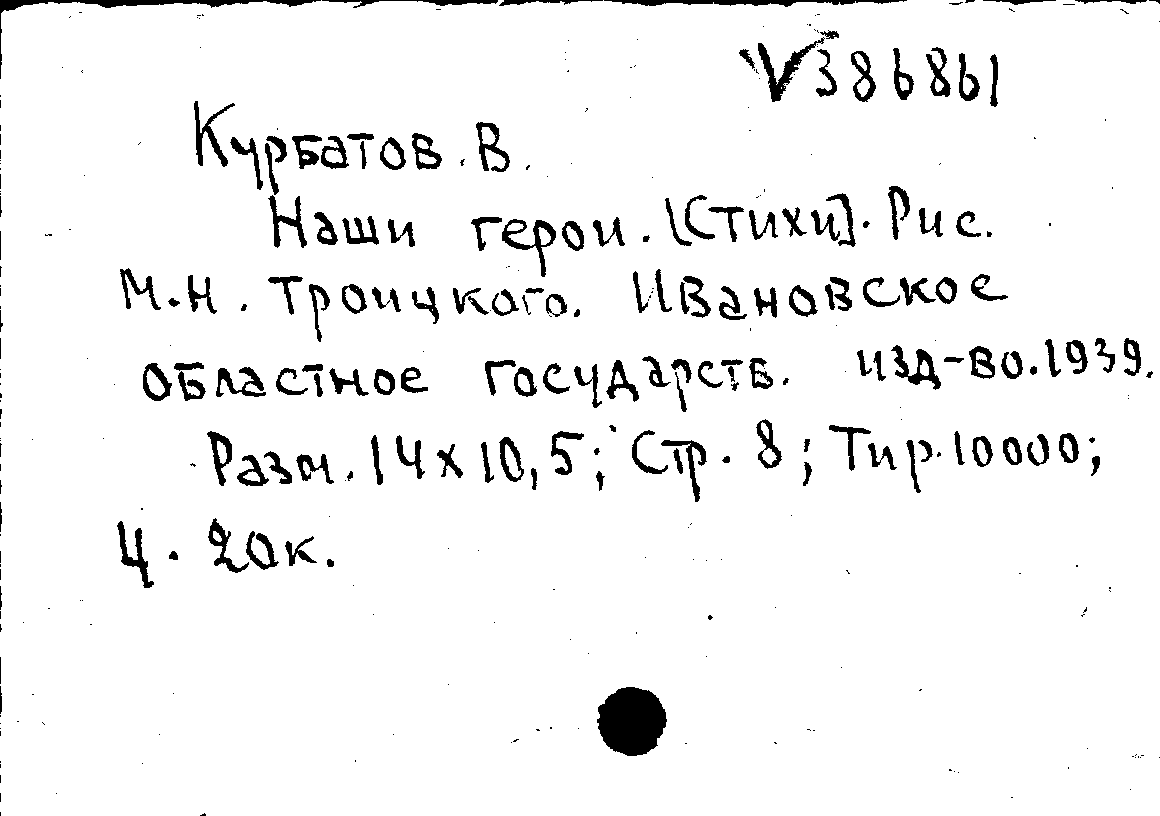 V386861
Курбатов. В.
Наши герои. [Стихи]. Рис.
М.Н. Троицкого. Ивановское
областное государств. изд-во. 1939.
Разм. 14x10,5; Стр. 8; Тир. 10000;
Ц. 20к.